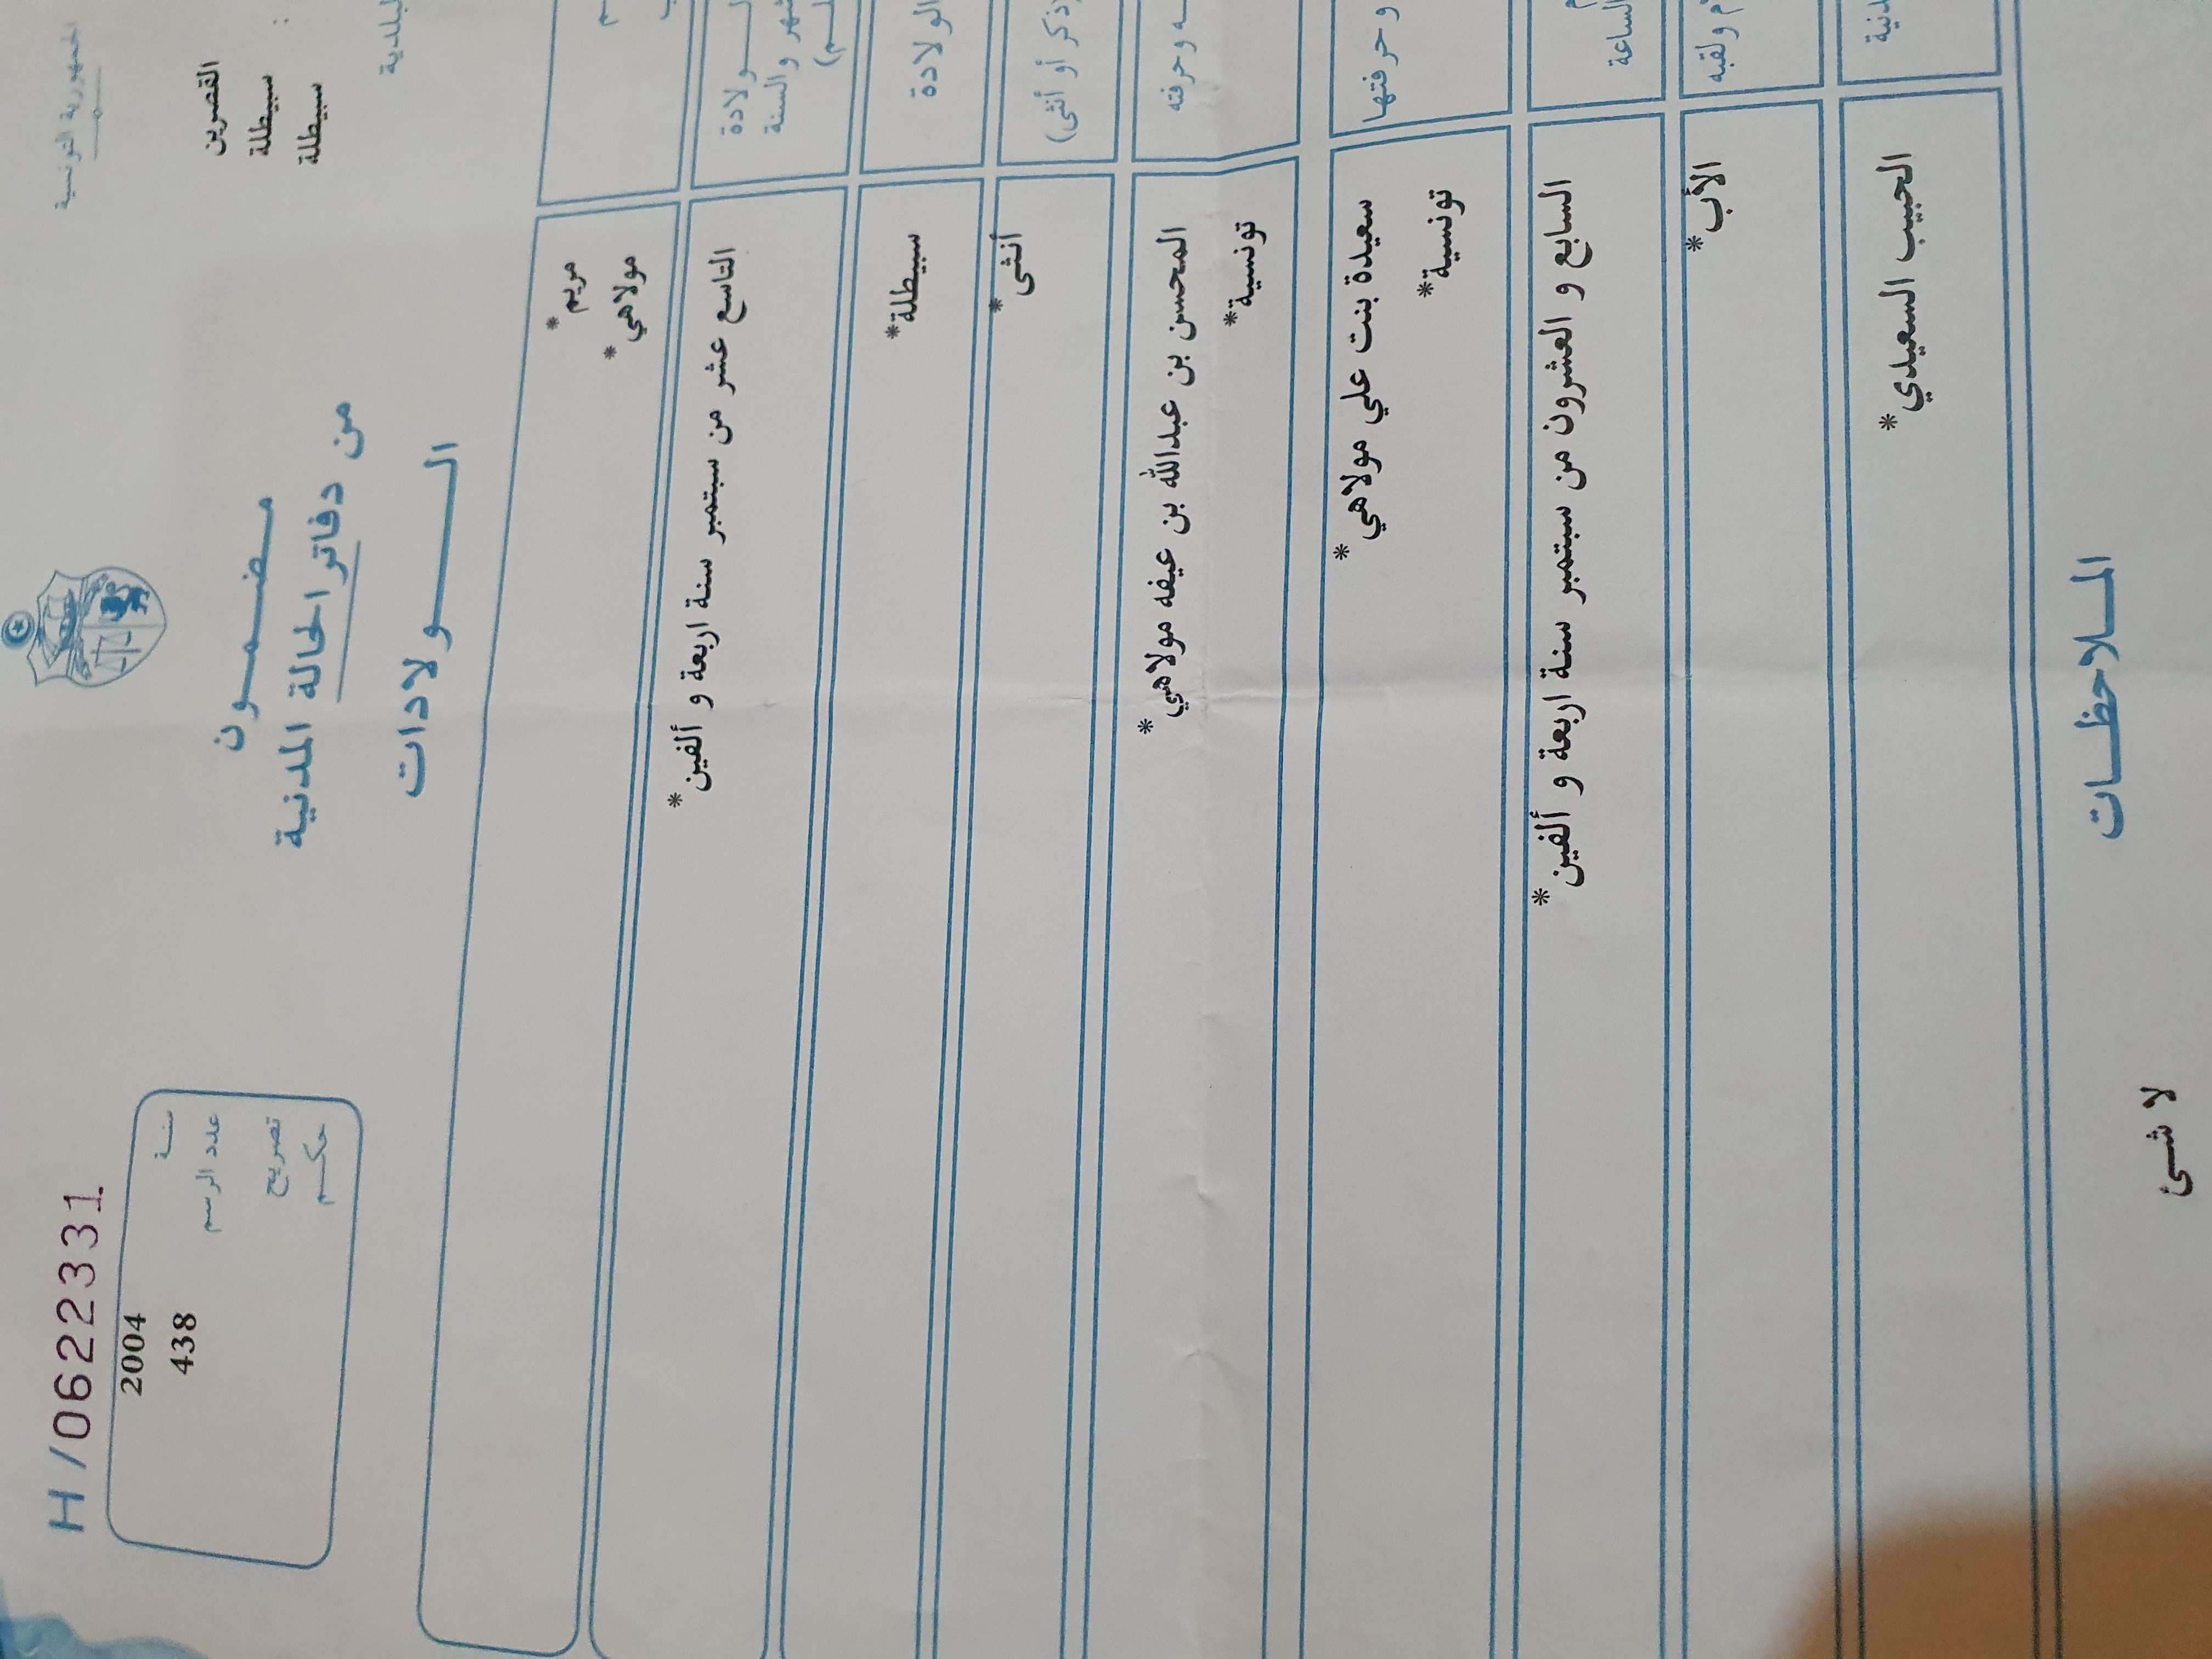 الجمهورية التونسية
H/0622331
القصرين
سبيطلة
سبيطلة
سنة 2004
عدد الرسم 438
تصريح
حكم
مضمون
من دفاتر الحالة المدنية
الولادات
مريم*
مولاهي*
التاسع عشر من سبتمبر سنة اربعة و ألفين*
الولادة سبيطلة*
(ذكر أو أنثى) أنثى*
المحسن بن عبدالله بن عيفه مولاهي*
وحرفته تونسية*
سعيدة بنت علي مولاهي*
وحرفتها تونسية*
السابع و العشرون من سبتمبر سنة اربعة و ألفين*
الساعة
ولقبه الأب*
الحبيب السعيدي*
الملاحظات
لا شىء